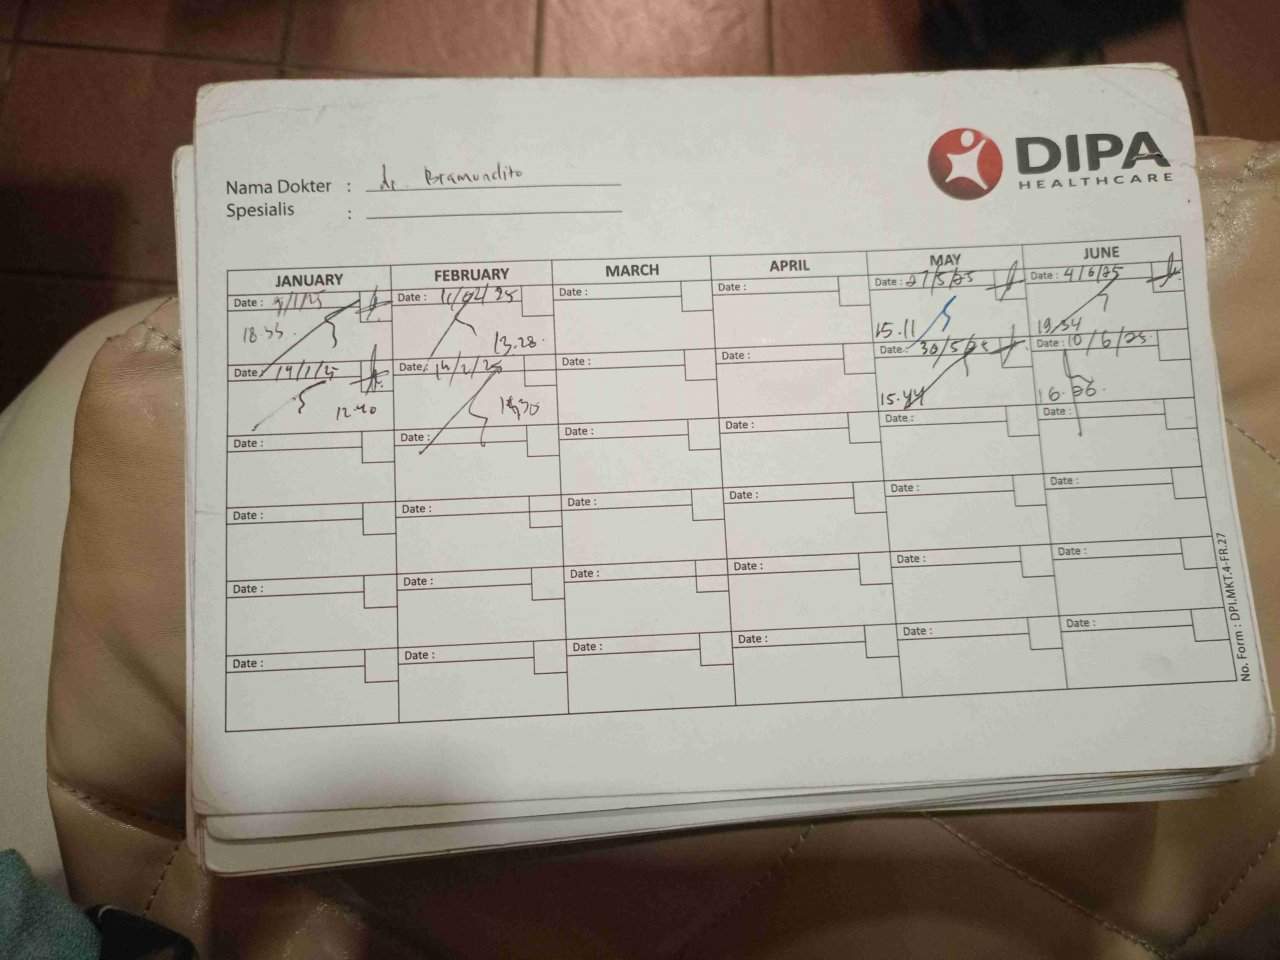 DIPA
HEALTHCARE
Nama Dokter : dr. Bramundito
Spesialis :
JANUARY FEBRUARY MARCH APRIL MAY JUNE
Date : 9/1/25 Date : 11/02/25 Date : Date : Date : 27/5/25 Date : 4/6/25
18.55. 13.28. 15.11 19.54
Date : 14/1/25 Date : 14/2/25 Date : Date : Date : 30/5/25 Date : 10/6/25
12.40 15.44
Date : Date : Date : Date : Date : Date :
Date : Date : Date : Date : Date : Date :
Date : Date : Date : Date : Date : Date :
Date : Date : Date : Date : Date : Date :
No. Form : DPI.MKT.4-FR.27